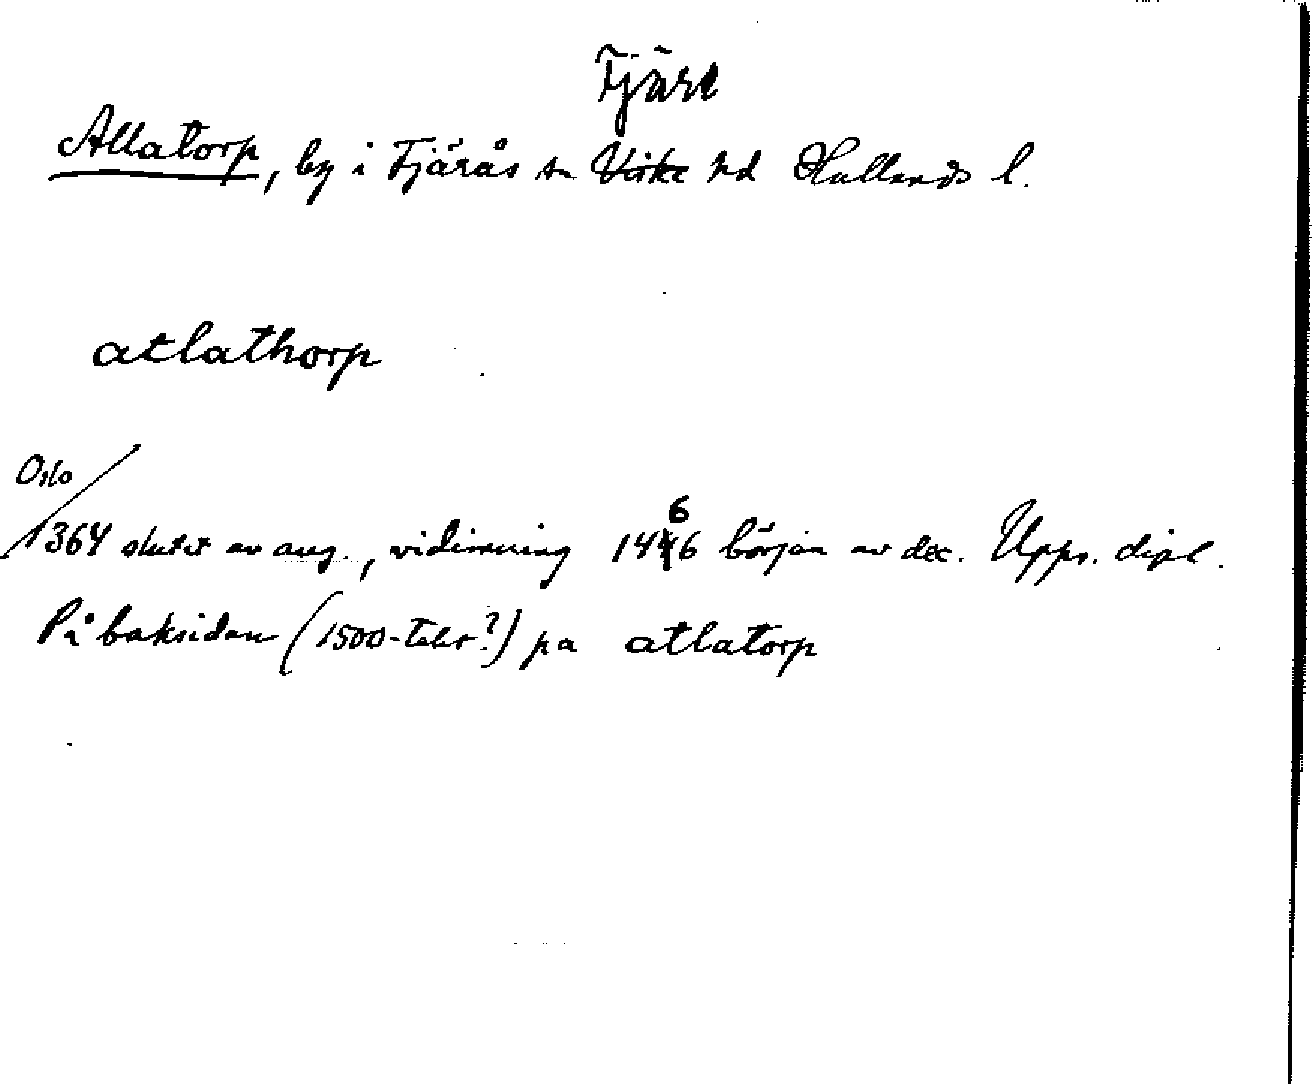 Fjäre
Allatorp, by i Fjärås sn Viske hd Hallands l.
atlathorp
Oslo
1364 slutet av aug., vidimering 1466 början av dec. Upps. dipl.
På baksidan (1500-talet?) pa atlatorp